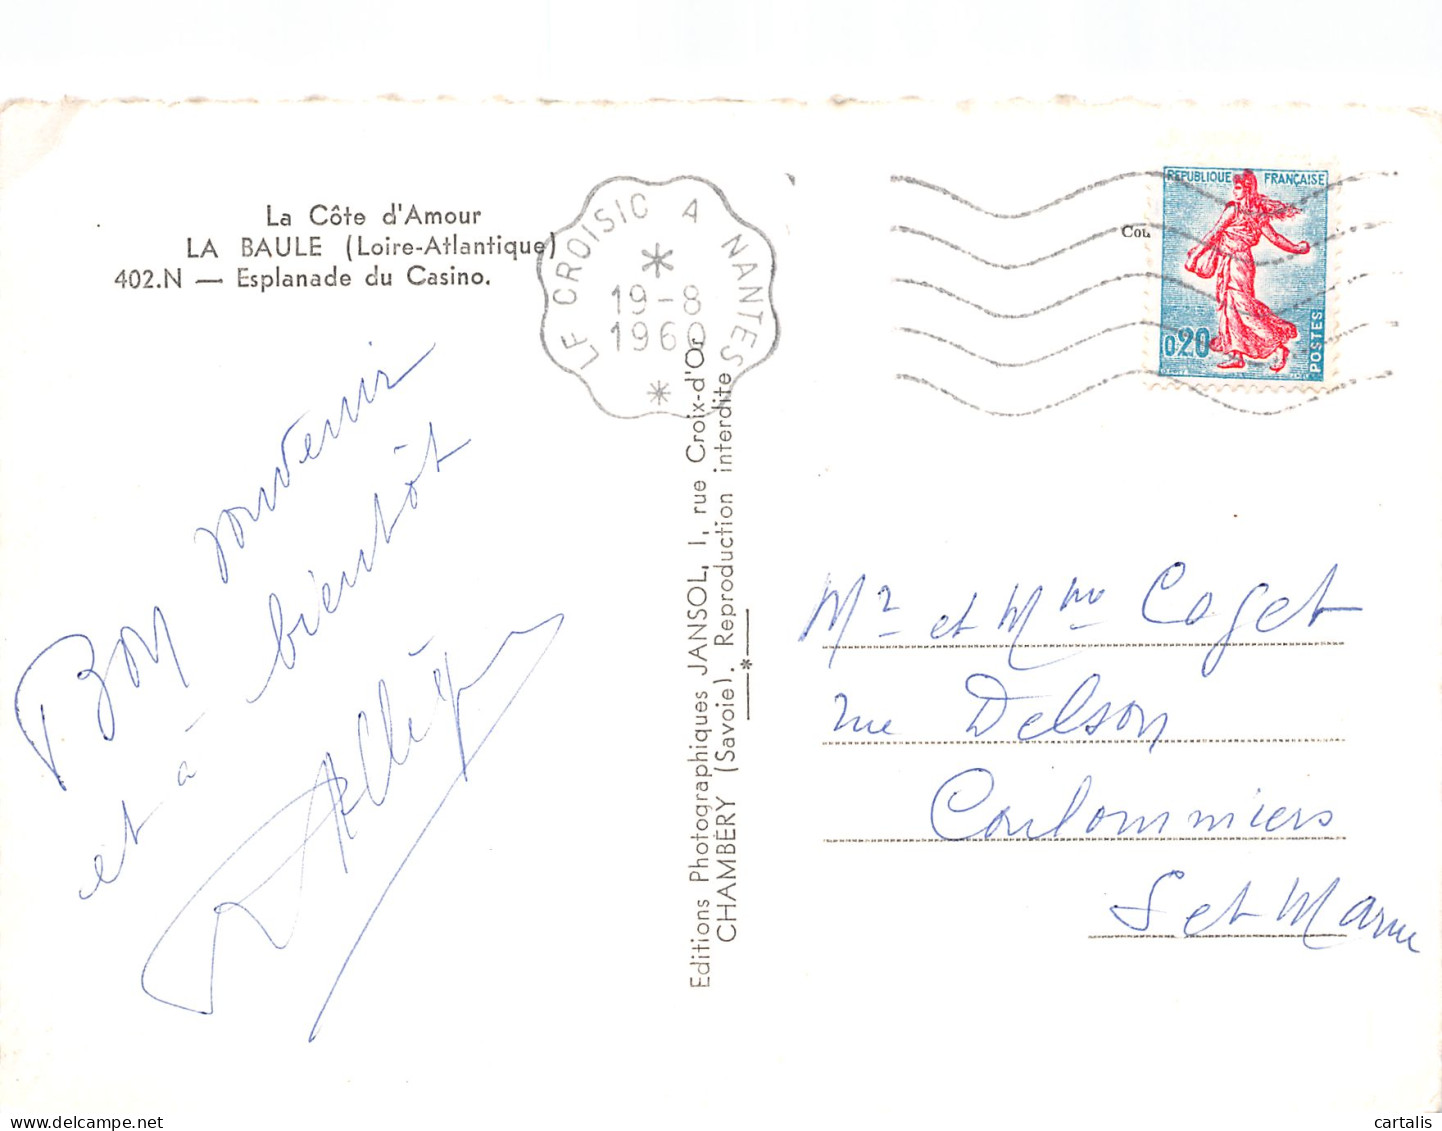 La Côte d'Amour
LA BAULE (Loire-Atlantique)
402.N — Esplanade du Casino.
LE CROISIC A NANTES
19-8
1960
REPUBLIQUE FRANÇAISE
0,20
POSTES
Bon souvenir
et à bientôt
Editions Photographiques JANSOL, 1, rue Croix-d'Or
CHAMBÉRY (Savoie). Reproduction interdite
Mr et Mme Coget
rue Delson
Coulommiers
S et Marne
cartalis